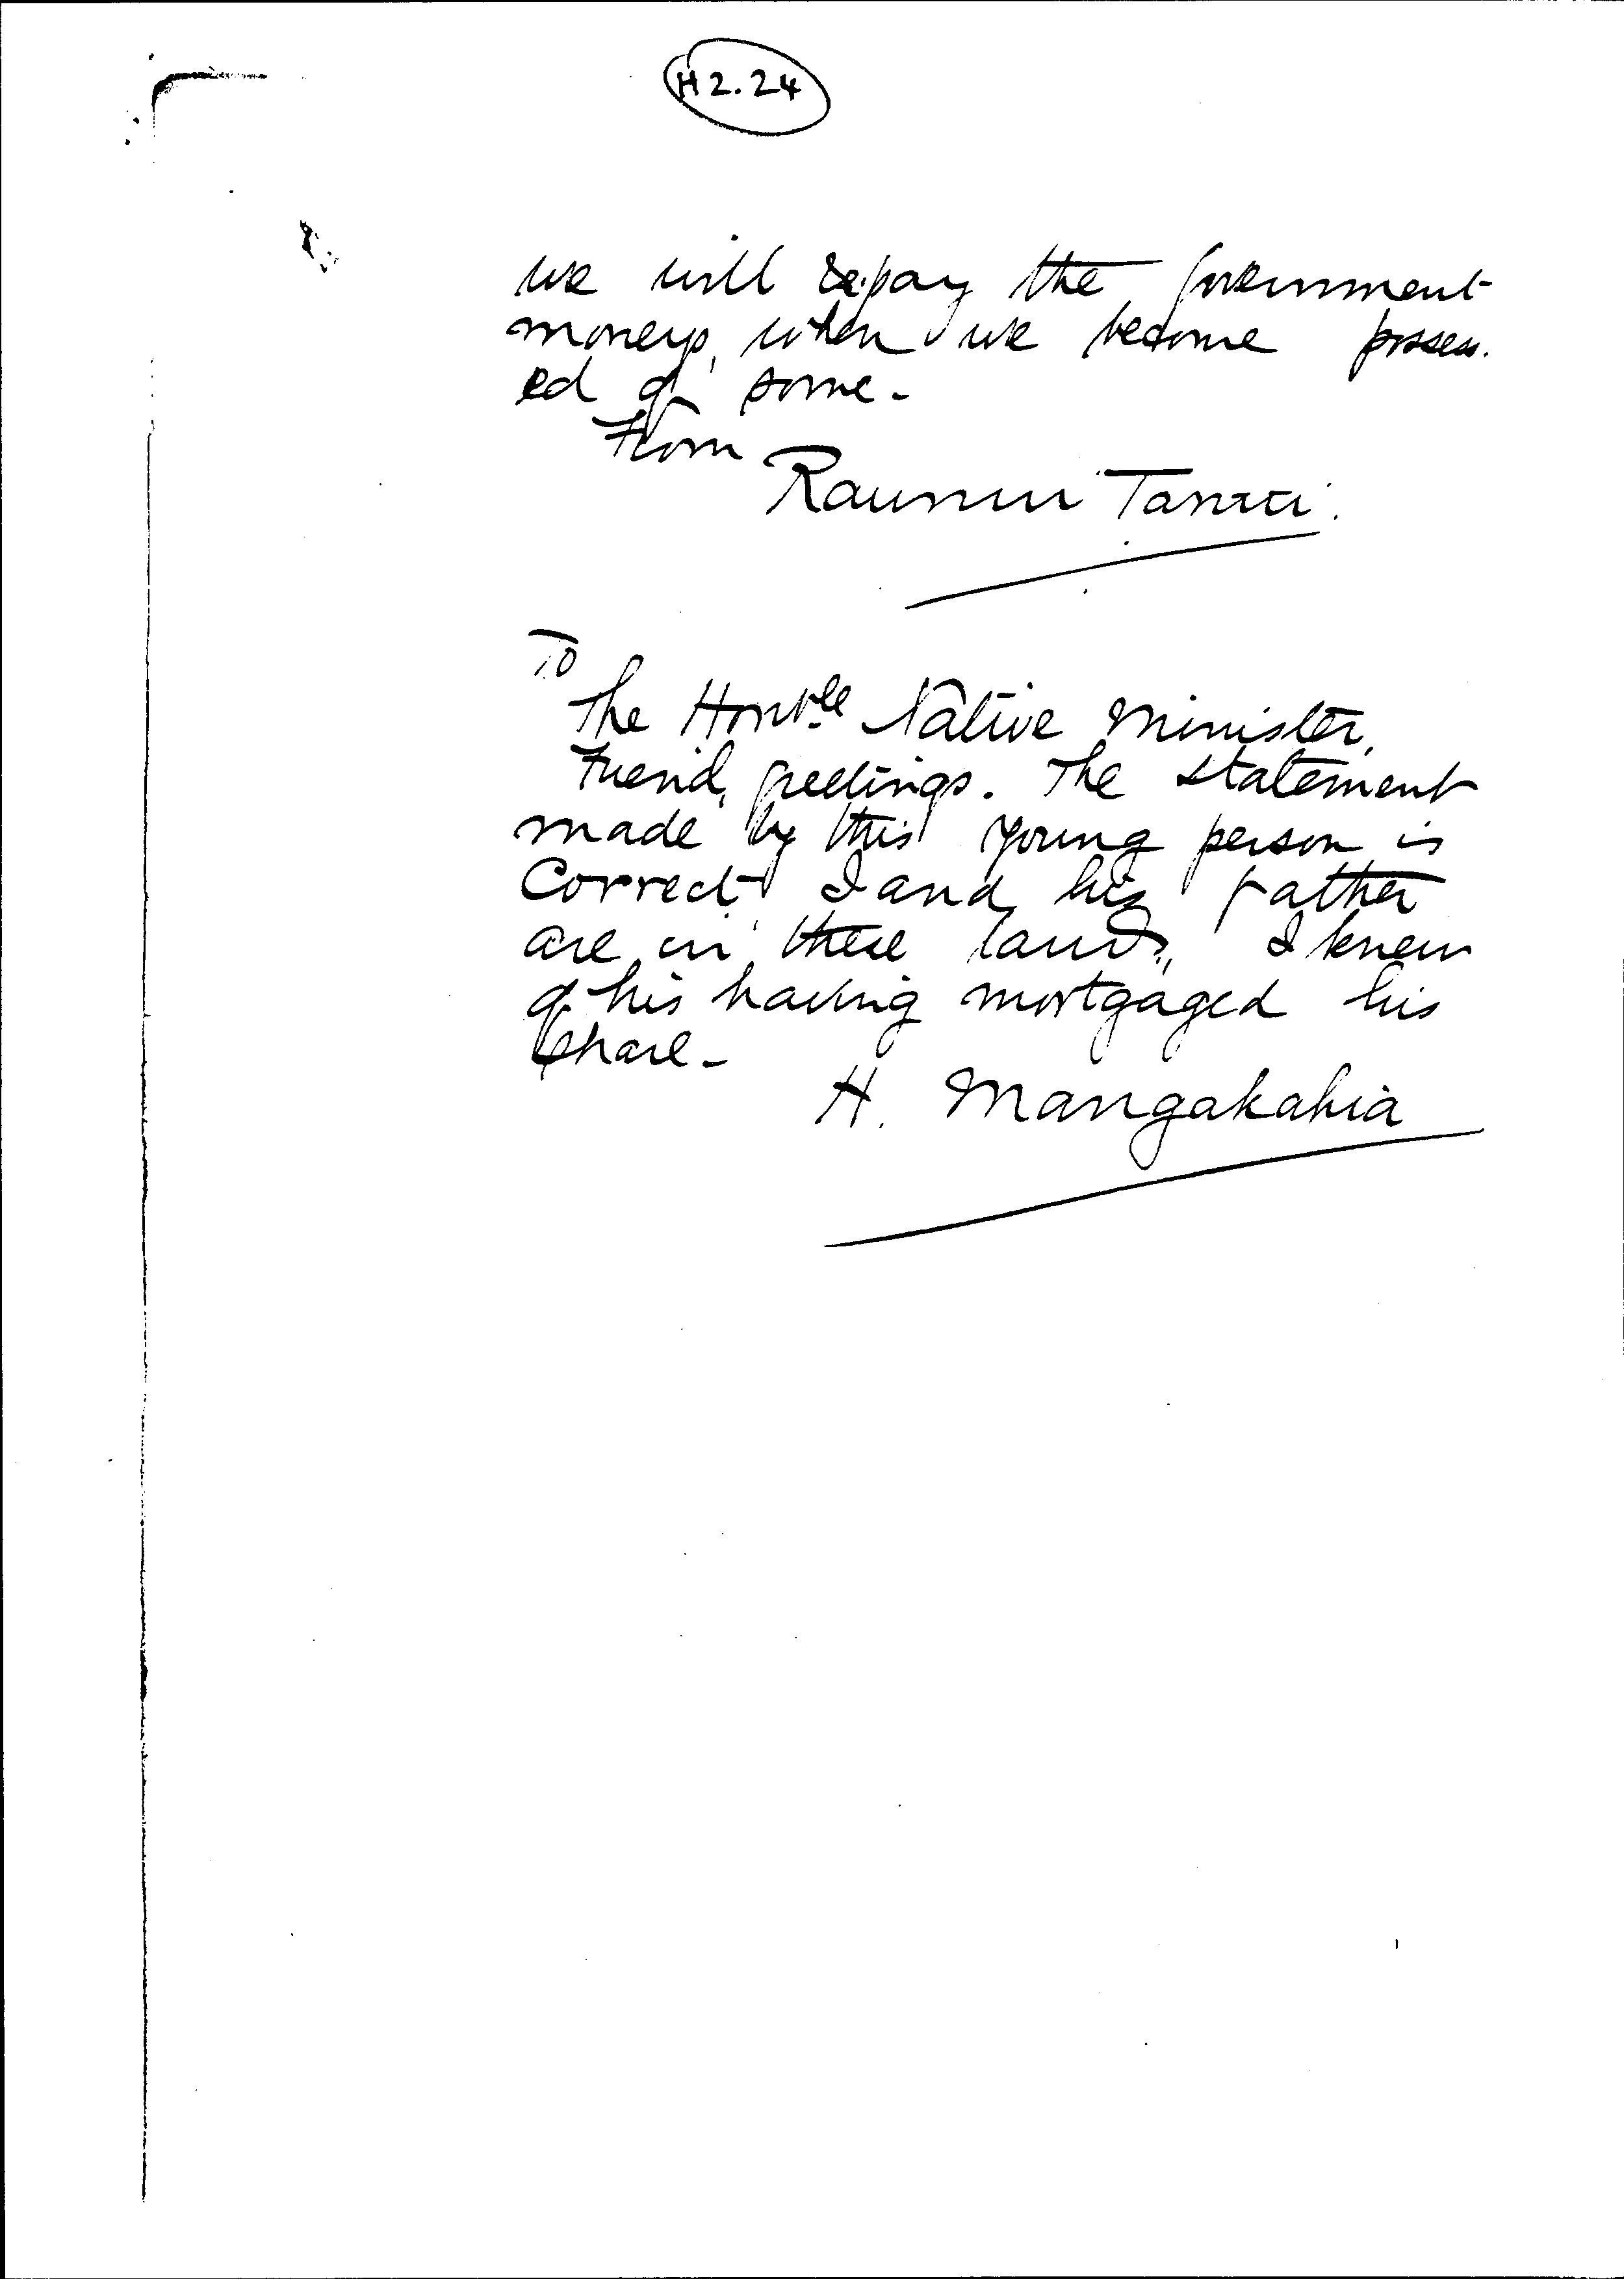 H2.24
we will repay the Government
moneys, when we become possess.
ed of some.
From
To
The Honble Native Minister,
Friend, Greetings. The statement
made by this young person is
Correct. I and his Father
are in these lands, I knew
of his having mortgaged his
share.
H. Mangakahia